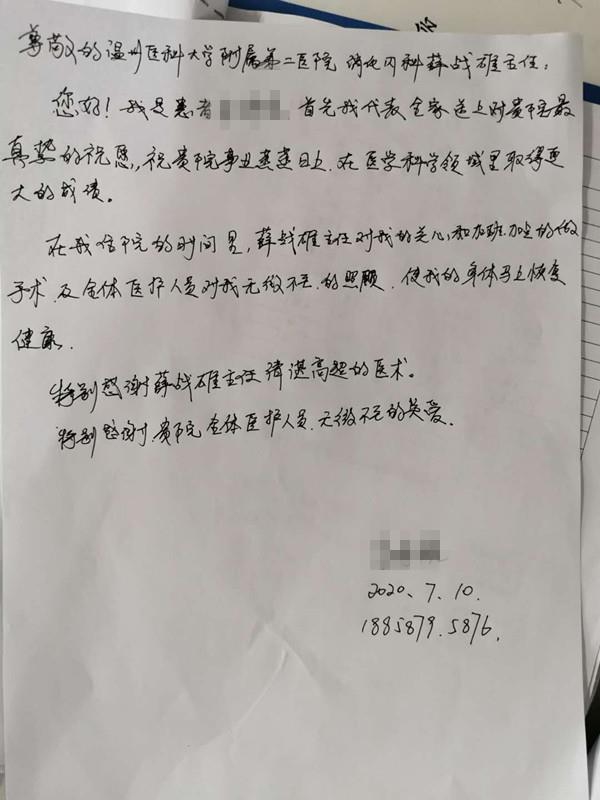 尊敬的温州医科大学附属第二医院 消化内科薛战雄主任:
您好!我是患者 首先我代表全家送上对贵院最
真挚的祝愿,,祝贵院事业蒸蒸日上.在医学科学领域里取得更
大的成绩。
在我住院的时间里,薛战雄主任对我的关心和加班加点的做
手术.及全体医护人员对我无微不至.的照顾.使我的身体马上恢复
健康.
特别感谢薛战雄主任精湛高超的医术。
特别感谢.贵院全体医护人员.无微不至的关爱.
2020、7、10.
1885879.5876.
你